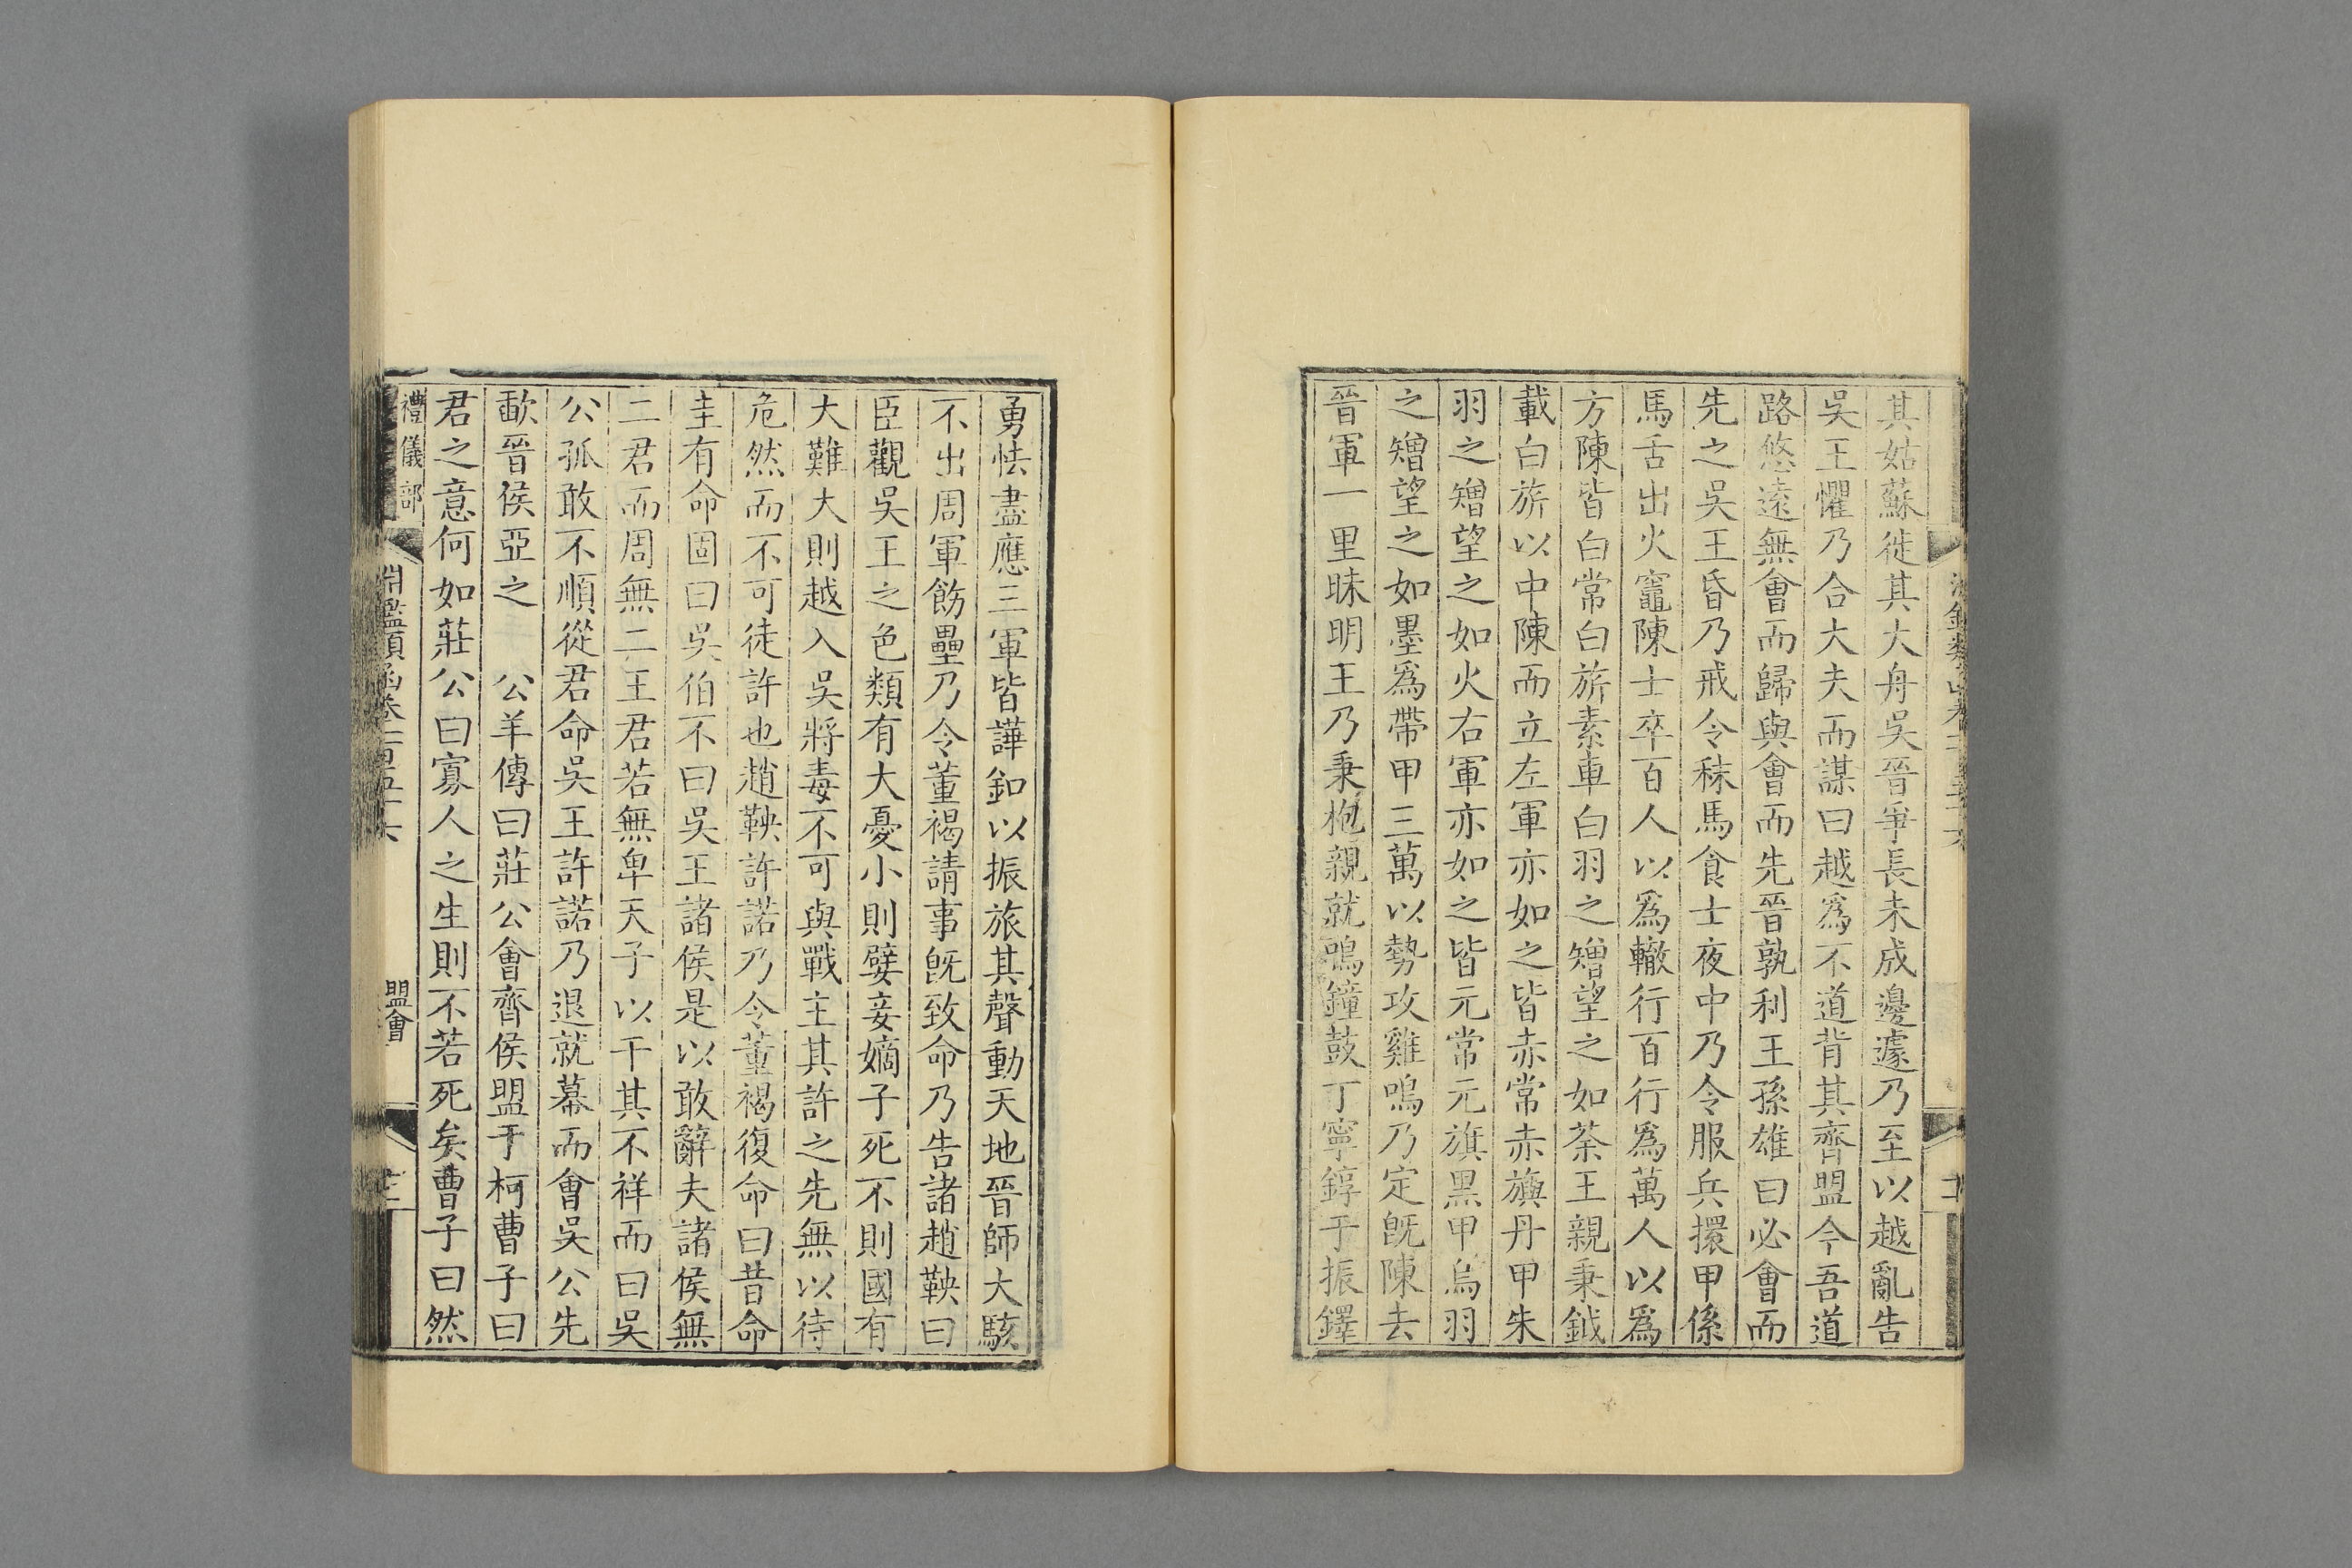 其姑蘇徙其大舟吳晉爭長未成邊遽乃至以越亂告
吳王懼乃合大夫而謀曰越爲不道背其齊盟今吾道
路悠遠無會而歸與會而先晉孰利王孫雄曰必會而
先之吳王昏乃戒令秣馬食士夜中乃令服兵擐甲係
馬舌出火竈陳士卒百人以爲轍行百行爲萬人以爲
方陳皆白常白旂素車白羽之矰望之如荼王親秉鉞
載白旂以中陳而立左軍亦如之皆赤常赤旟丹甲朱
羽之矰望之如火右軍亦如之皆元常元旗黑甲烏羽
之矰望之如墨爲帶甲三萬以勢攻雞鳴乃定既陳去
晉軍一里昧明王乃秉枹親就鳴鐘鼓丁寧錞于振鐸
勇怯盡應三軍皆譁釦以振旅其聲動天地晉師大駭
不出周軍飭壘乃令董褐請事既致命乃告諸趙鞅曰
臣觀吳王之色類有大憂小則嬖妾嫡子死不則國有
大難大則越入吳將毒不可與戰主其許之先無以待
危然而不可徒許也趙鞅許諾乃令董褐復命曰昔命
圭有命固曰吳伯不曰吳王諸侯是以敢辭夫諸侯無
二君而周無二王君若無卑天子以干其不祥而曰吳
公孤敢不順從君命吳王許諾乃退就幕而會吳公先
歃晉侯亞之 公羊傳曰莊公會齊侯盟于柯曹子曰
君之意何如莊公曰寡人之生則不若死矣曹子曰然
禮儀部 淵鑑類函卷一百五十六 盟會